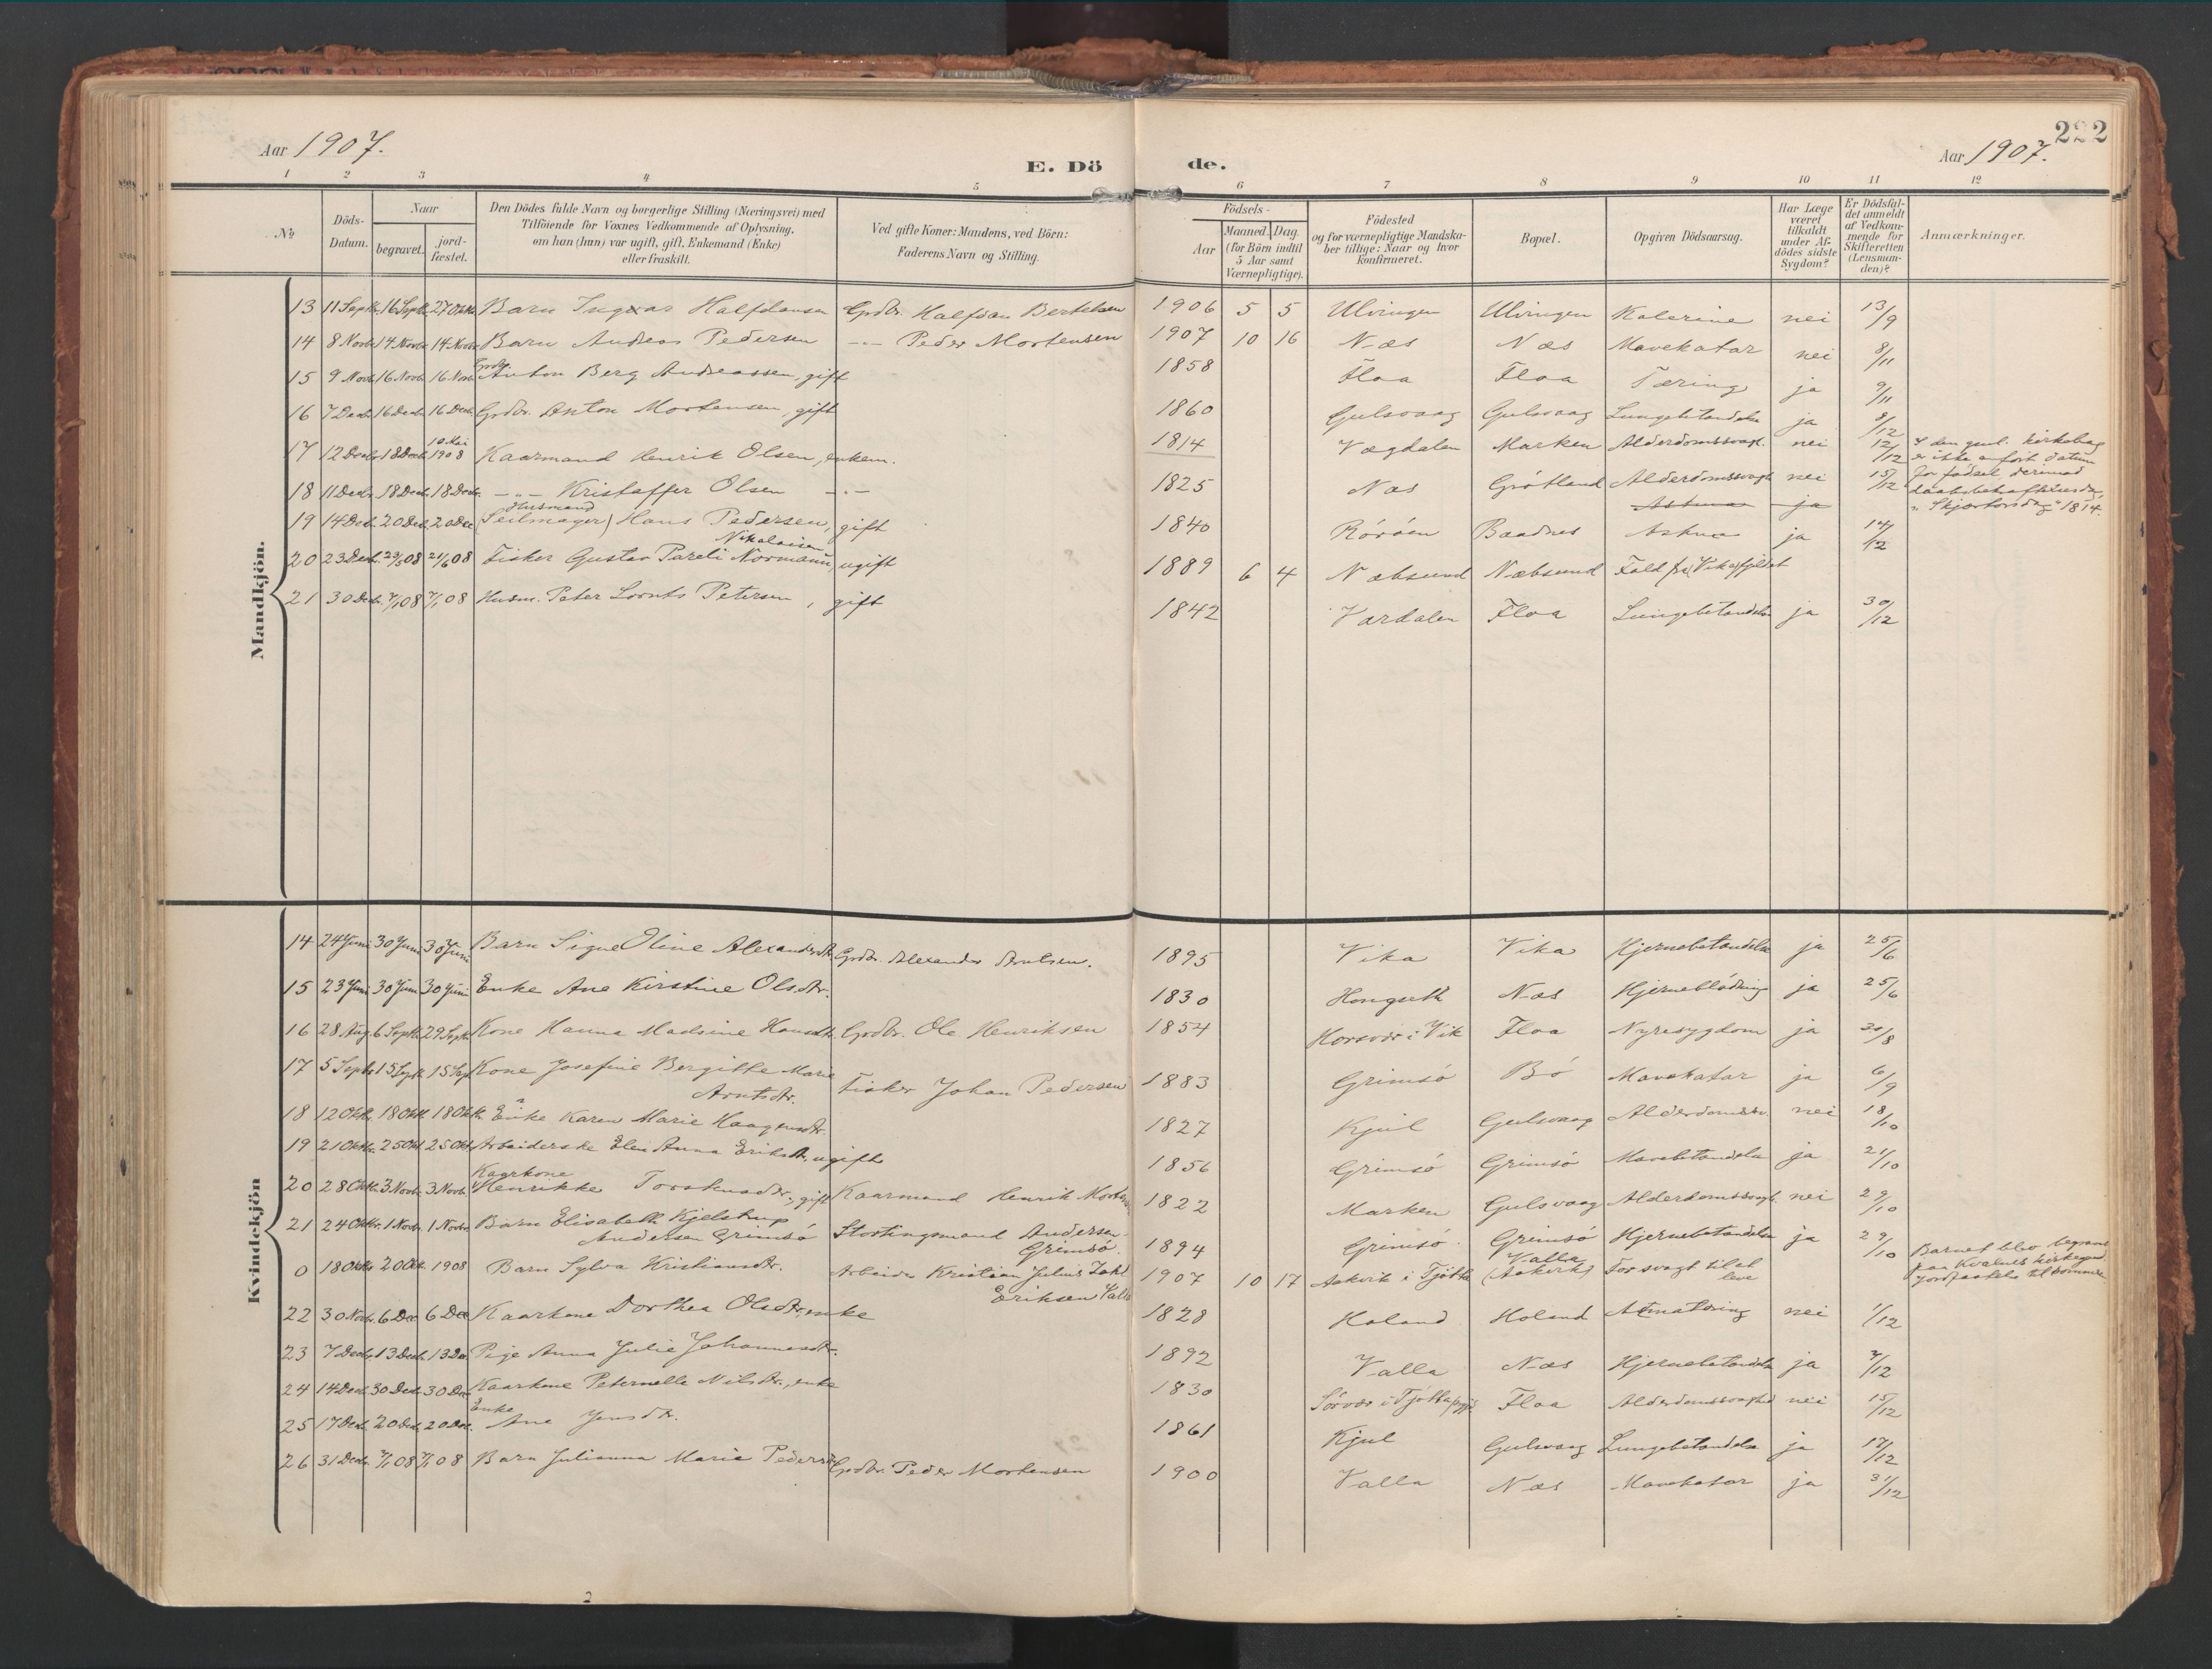 Aar 1907.
E. Döde.
Aar 1907. 222
1 2 3 4 5 6 7 8 9 10 11 12
№
Döds-Datum.
Naar begravet. jordfæstet.
Den Dödes fulde Navn og borgerlige Stilling (Næringsvei) med
Tilföiende for Voxnes Vedkommende af Oplysning,
om han (hun) var ugift, gift, Enkemand (Enke)
eller fraskilt.
Ved gifte Koner: Mandens, ved Börn:
Faderens Navn og Stilling.
Födsels-
Aar
Maaned. Dag.
(for Börn indtil
5 Aar samt
Værnepligtige).
Födested
og for værnepligtige Mandska-
ber tillige: Naar og hvor
konfirmeret.
Bopæl.
Opgiven Dödsaarsag.
Har Læge
været
tilkaldt
under Af-
dödes sidste
Sygdom?
Er Dödsfal-
det anmeldt
af Vedkom-
mende for
Skifteretten
(Lensman-
den)?
Anmærkninger.
Mandkjön.
13 11 Septb. 16 Septb. 27 Oktb. Barn Ingvar Halfdansen Grdbr. Halfdan Bertelsen 1906 5 5 Ulvingen Ulvingen Kolerine nei 13/9
14 8 Novb. 14 Novb. 14 Novb. Barn Andreas Pedersen -"- Peder Mortensen 1907 10 16 Næs Næs Mavekatar nei 8/11
15 9 Novb. 16 Novb. 16 Novb. Grdbr. Anton Berg Andreassen, gift 1858 Floa Floa Tæring ja 9/11
16 7 Decb. 16 Decb. 16 Decb. Grdbr. Anton Mortensen, gift 1860 Gulsvaag Gulsvaag Lungebetændelse ja 8/12
17 12 Decb. 18 Decb. 10 Mai 1908 Kaarmand Henrik Olsen, enkem. 1814 Vægdalen Marken Alderdomssvagh. nei 12/12 I den gml. kirkebog
er ikke anført datum
for fødsel derimod
daabsbekræftelsesdag
"Skjærtorsdag" 1814.
18 11 Decb. 18 Decb. 18 Decb. -"- Kristoffer Olsen -"- 1825 Næs Grøtland Alderdomssvagh nei 15/12
Astma ja
19 14 Decb. 20 Dec. 20 Dec Husmand (Seilmager) Hans Pedersen, gift 1840 Rørøen Baadnes Astma ja 14/12
20 23 Decb. 23/5 08 21/6 08 Fisker Gustav Pareli Nikolaisen Normann, ugift 1889 6 4 Næbsund Næbsund Fald fra Vikafjeldet
21 30 Decb. 7/1 08 7/1 08 Husm. Peter Lornts Petersen, gift 1842 Værdalen Floa Lungebetændelse ja 30/12
Kvindekjön
14 24 Juni 30 Juni 30 Juni Barn Signe Eline Alexandersdtr. Grdbr. Alexander Arntsen. 1895 Vika Vika Hjernebetændelse ja 25/6
15 23 Juni 30 Juni 30 Juni Enke Ane Kirstine Olsdtr. 1830 Hongseth Næs Hjerneblødning ja 25/6
16 28 Aug. 6 Septb. 29 Septb. Kone Hanna Madsine Hansdtr. Grdbr. Ole Henriksen 1854 Horsvær i Vik Floa Nyresygdom ja 30/8
17 5 Septb. 15 Septb. 15 Sept Kone Josefine Bergitte Marie
Arntsdtr. Fisker Johan Pedersen 1883 Grimsø Bø Mavekatar ja 6/9
18 12 Oktb. 18 Oktb. 18 Oktb. Enke Karen Marie Haagensdtr. 1827 Kjul Gulsvaag Alderdomssv. nei 18/10
19 21 Oktb. 25 Okt 25 Okt Arbeiderske Elen Anna Eriksdtr., ugift 1856 Grimsø Grimsø Mavebetændelse ja 21/10
20 28 Oktb. 3 Novb. 3 Novb. Kaarkone Henrikke Torstensdtr., gift Kaarmand Henrik Mortensen 1822 Marken Gulsvaag Alderdomssvagh. nei 29/10
21 24 Oktbr. 1 Novbr. 1 Novbr. Barn Elisabeth Kjelstrup
Andersen Grimsø Stortingsmand Andersen
Grimsø. 1894 Grimsø Grimsø Hjernebetændelse ja 29/10
0 18 Oktb. 20 Okt. 1908 Barn Sylva Kristiansdtr. Arbeider Kristian Julius Zahl
Eriksen Valla 1907 10 17 Aakvik i Tjøtta Valla (Aakvik) For svagt til at leve Barnet blev begravet
paa Kvalnes kirkegaard
jordfæstes til sommeren
22 30 Novb. 6 Dec 6 Dec Kaarkone Dorthea Olsdtr., enke 1828 Holand Holand nei 1/12
23 7 Decb. 13 Decb. 13 Dec. Pige Anna Julie Johannesdtr. 1892 Valla Næs Hjernebetændelse ja 7/12
24 14 Dec. 30 Decb. 30 Dec Kaarkone Peternelle Nilsdtr., enke 1830 Sørvær i Tjøtta prgjd. Floa Alderdomssvaghed nei 15/12
25 17 Decb. 20 Decb. 20 Decb. Enke Ane Jensdtr. 1861 Kjul Gulsvaag Lungebetændelse ja 17/12
26 31 Decb. 7/1 08 7/1 08 Barn Julianna Marie Pedersdtr Grdbr. Peder Mortensen 1900 Valla Næs Mavekatar ja 31/12